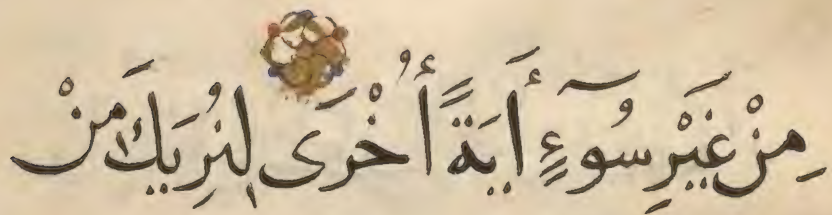 مِنْ غَيْرِ سُوٓءٍ أَيَةً أُخْرَى لِنُرِيَكَ مِنْ